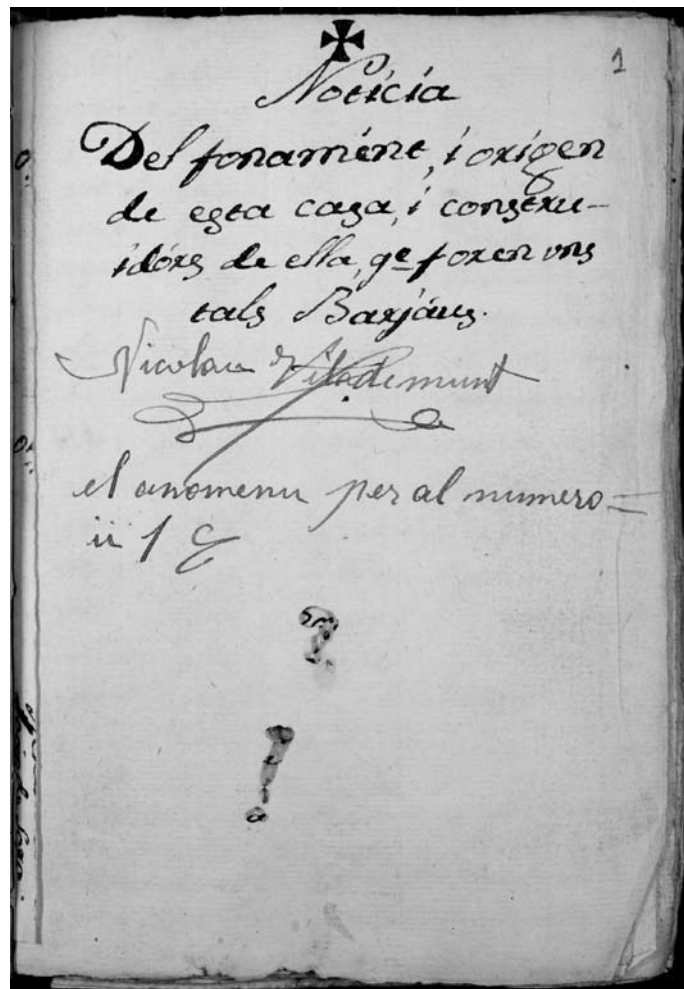 1
Noticia
Del fonamént, i origen
de esta casa, i constru-
idórs de ella, qe. foren uns
tals Barjáus.
Nicolau de Vilademunt
el anomenu per al numero